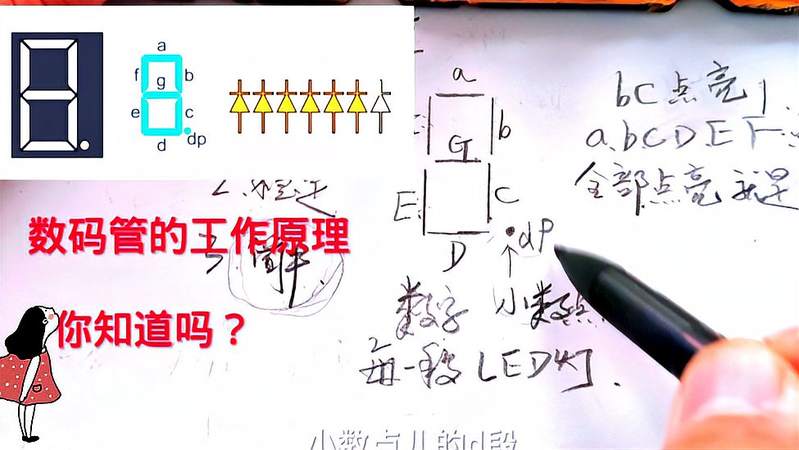 a
f
b
g
e
c
d
dp
数码管的工作原理
你知道吗？
a
b
G
E
C
D
dP
bC点亮1
a.bCDEF
全部点亮就是
数字
小数点
每一段LED灯.
小数点儿的d段